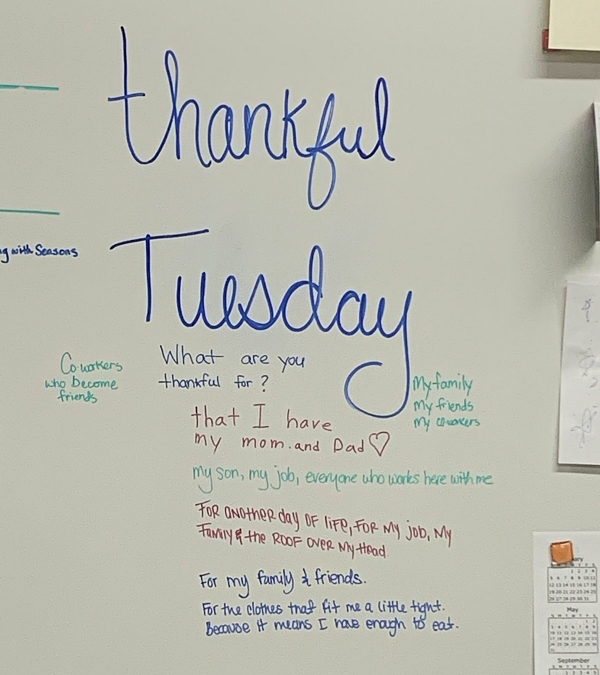 thankful
Tuesday
with Seasons
What are you
thankful for?
Co-workers
who become
friends
My family
my friends
my coworkers
that I have
my mom and Dad♡
my son, my job, everyone who works here with me
For another day of life, for my job, my
Family & the ROOF over my Head
For my family & friends.
For the clothes that fit me a little tight.
Because it means I have enough to eat.
May
September